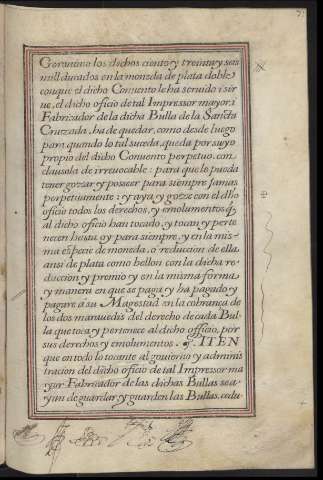 Geronimo los dichos ciento y treinta y seis
mill ducados en la moneda de plata doble,
con que el dicho Conuento le ha seruido i sir
ue, el dicho oficio de tal Impressor mayor, i
Fabrizador de la dicha Bulla de la Sancta
Cruzada, ha de quedar, como desde luego
para quando lo tal suceda, queda por suyo
propio del dicho Conuento perpetuo, con
clausola de irreuocable: para que le pueda
tener gozzar y posseer para siempre jamas
perpetuamente: y aya y gozze con el dho
oficio todos los derechos, y emolumentos q̃
al dicho oficio han tocado, y tocan y perte
necen hasta oy para siempre, y en la mis-
ma espeçie de moneda, o reducion de ella
ansi de plata como bellon con la dicha re-
ducçion y premio y en la misma forma
y manera en que se paga y ha pagado y
pagare a su Magestad en la cobrança de
los dos marauedis del derecho de cada Bul-
la que toca y pertenece al dicho officio, por
sus derechos y emolumentos. ITEN
que en todo lo tocante al gouierno y adminis
tracion del dicho oficio de tal Impressor ma
yor Fabrizador de las dichas Bullas se a-
yan de guardar y guarden las Bullas, cedu-